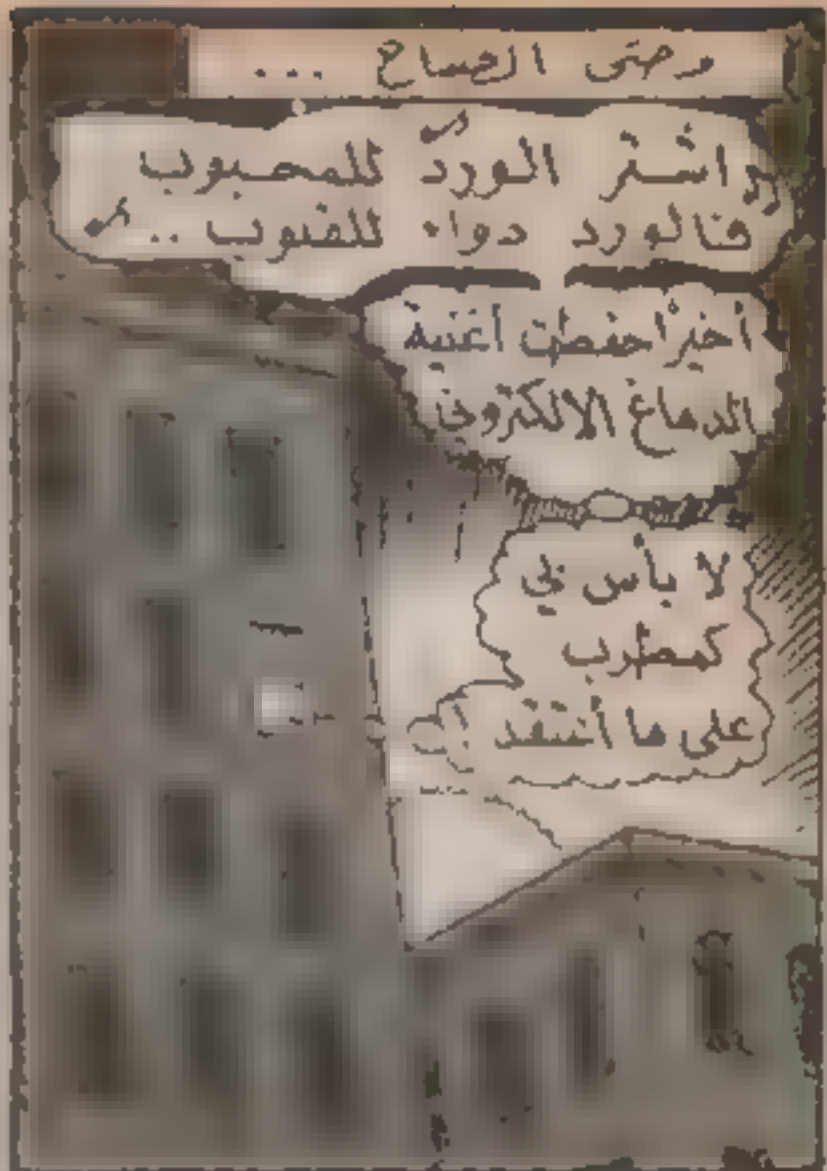 وحتى الصباح ...
اشتر الورد للمحبوب
فالورد دواء للقلوب ..
أخيرا حفظت أغنية
الدماغ الالكتروني
لا بأس بي
كمطرب
على ما أعتقد !